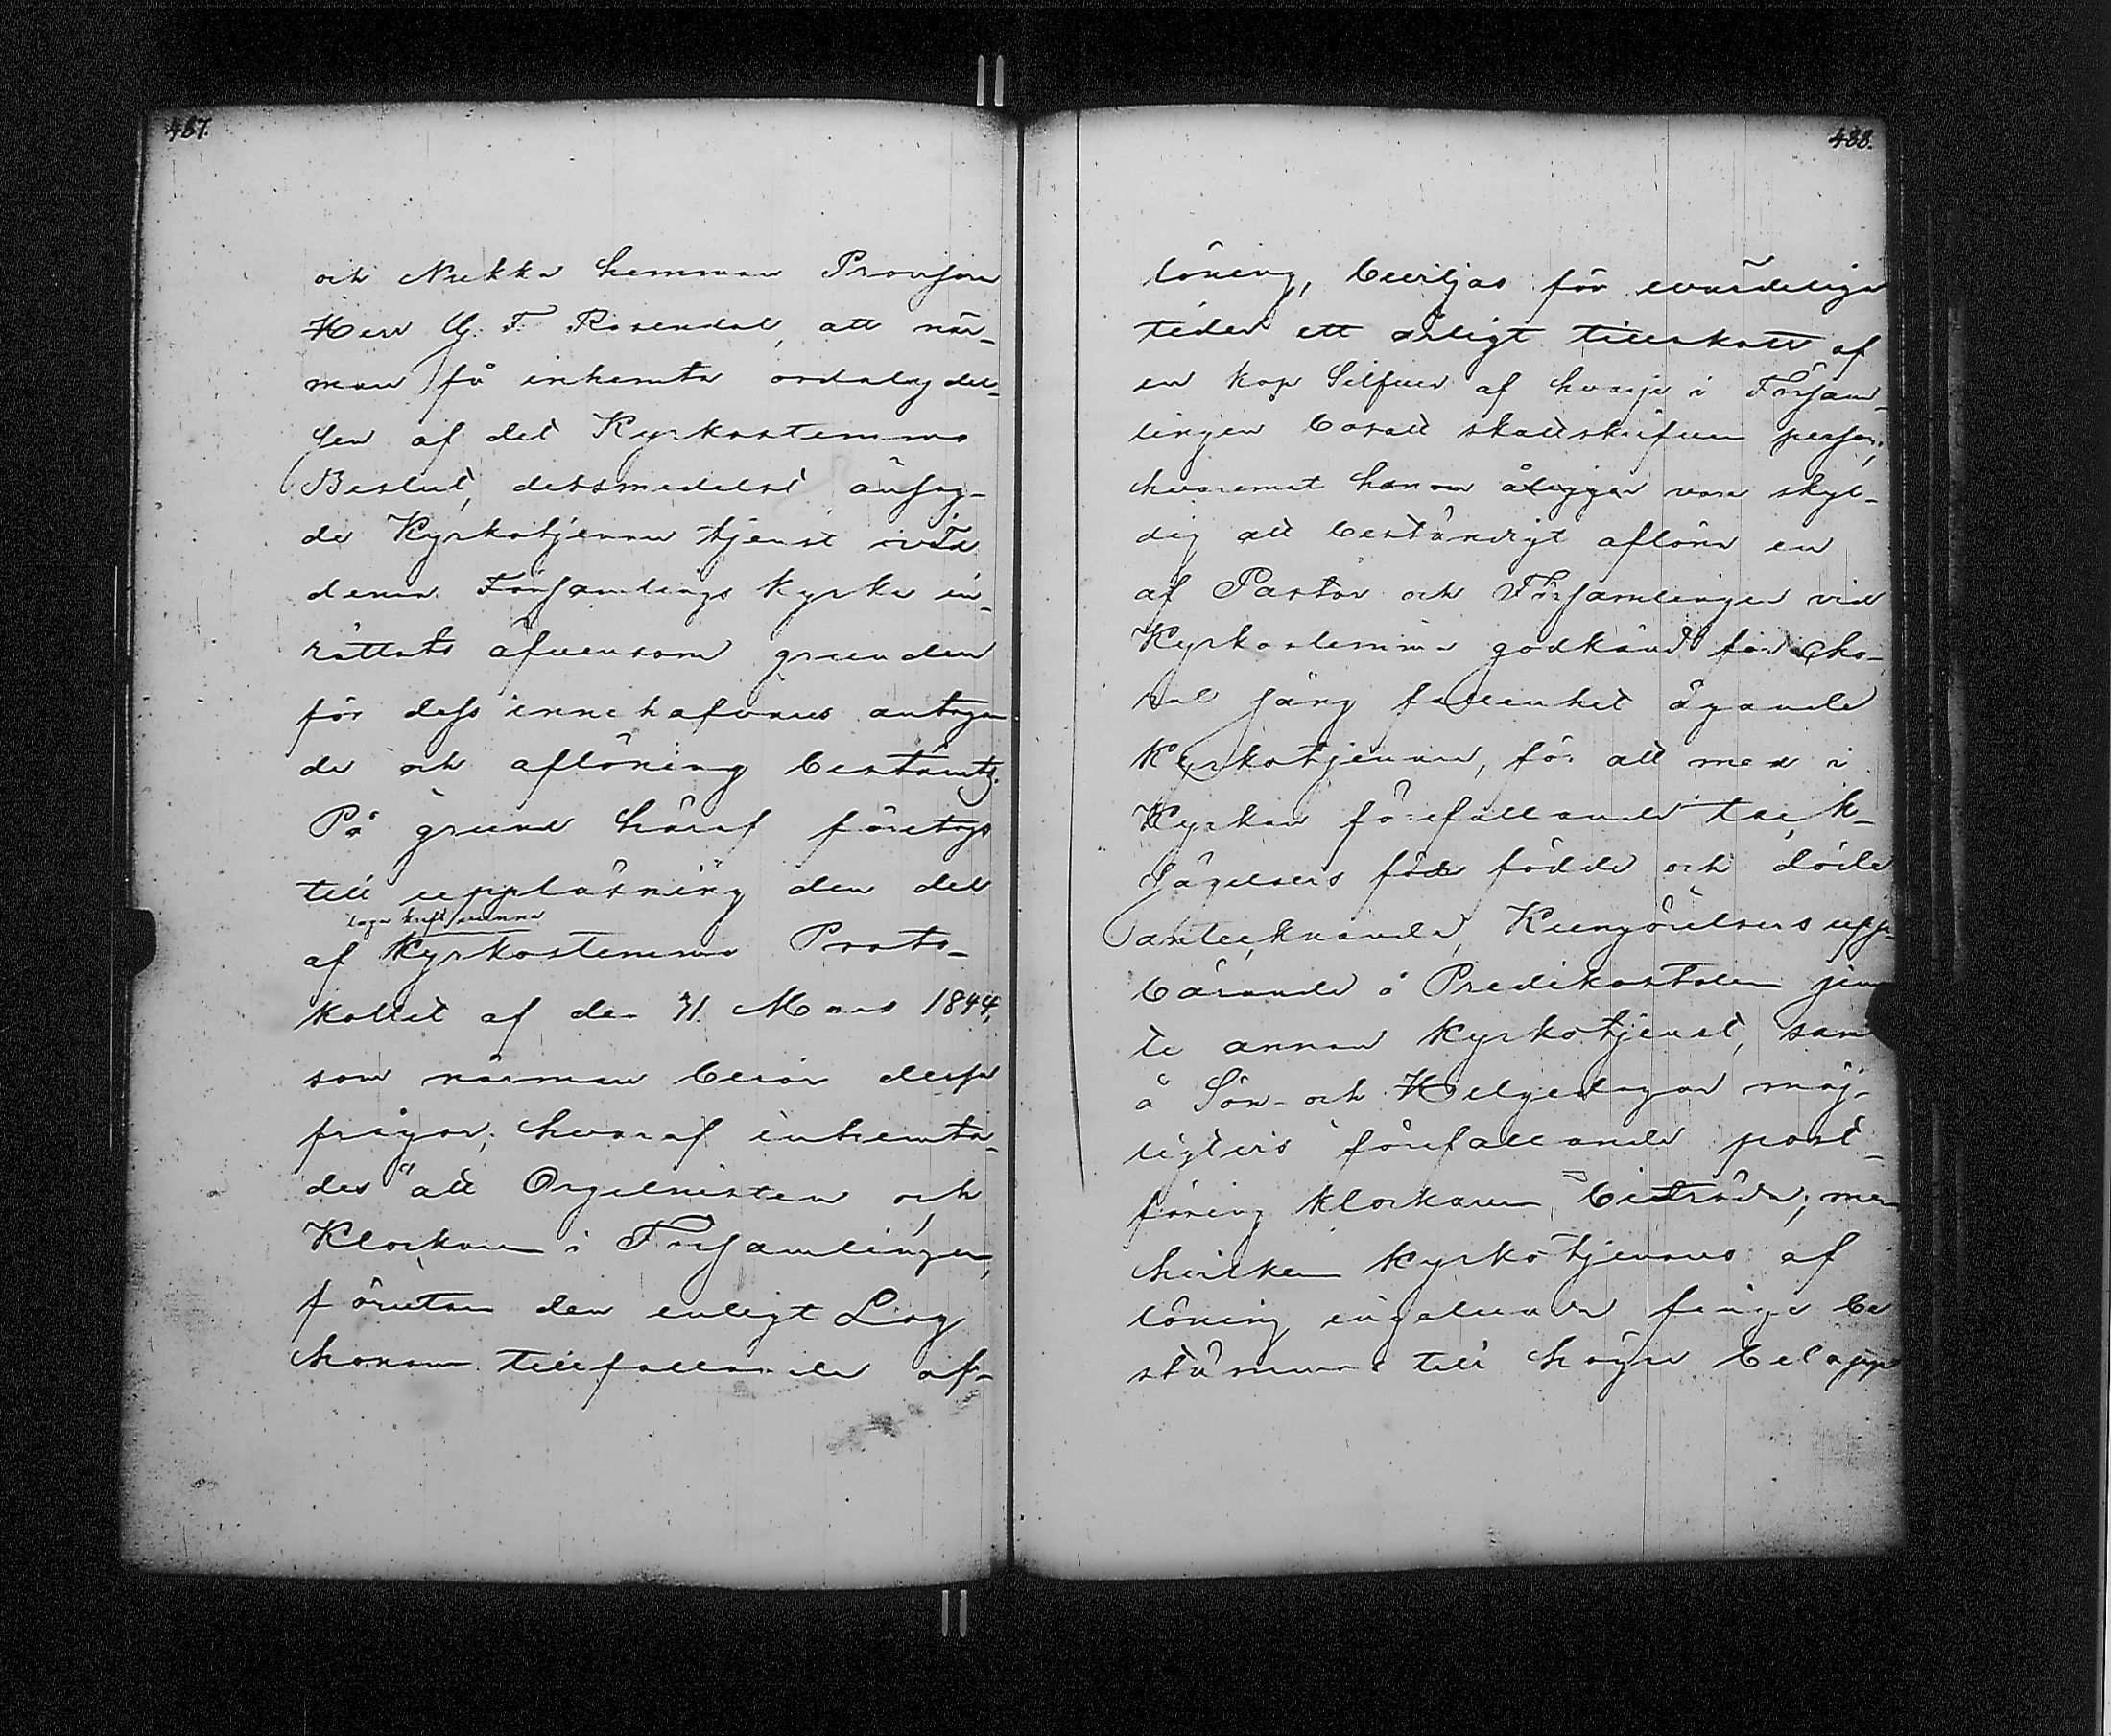 487.
och Nukka hemman Provisorn
Herr G. F. Rosendal, att när-
man få inhemta ordalydel-
sen af det Kyrkostemmo
Beslut, detsmedelst ansag-
de Kyrkotjenare tjenst vid
denna Församlings kyrka in-
rättats äfvensom grunden
för dess innehafvares antagan
de och aflöning bestämts.
På grund häraf företogs
till uppläsning den del
laga kraft vunna
af Kyrkostemmo Proto-
kollet af den 31 Mars 1844,
som närmare berör dessa
frågor, hvaraf inhemta-
des att Orgelnisten och
Klockaren i Församlingen,
förutom den enligt Lag
honom tillfallande af-
488.
löning, beviljas för evärdeliga
tider ett årligt tillskott af
en kop Silfver af hvarje i Försam-
lingen bosatt skattskrifven person,
hvaremot honom åligger vara skyl-
dig att beständigt aflöna en
af Pastor och Församlingen vid
Kyrkostemma godkänd för Cho-
ral sång fallenhet ägande
Kyrkotjenare, för att med i
Kyrkan förefallande tack-
sägelsers föde födde och döde
antecknande, Kungörelsers upp-
bärande å Predikostolen jem
te annan Kyrkotjenst, samt
å Sön- och Helgedagar möj-
ligtvis förefallande post-
föring Klockaren biträda; men
hvilken Kyrkotjenares af
löning ingalunda finge be
stämmas till högre belopp